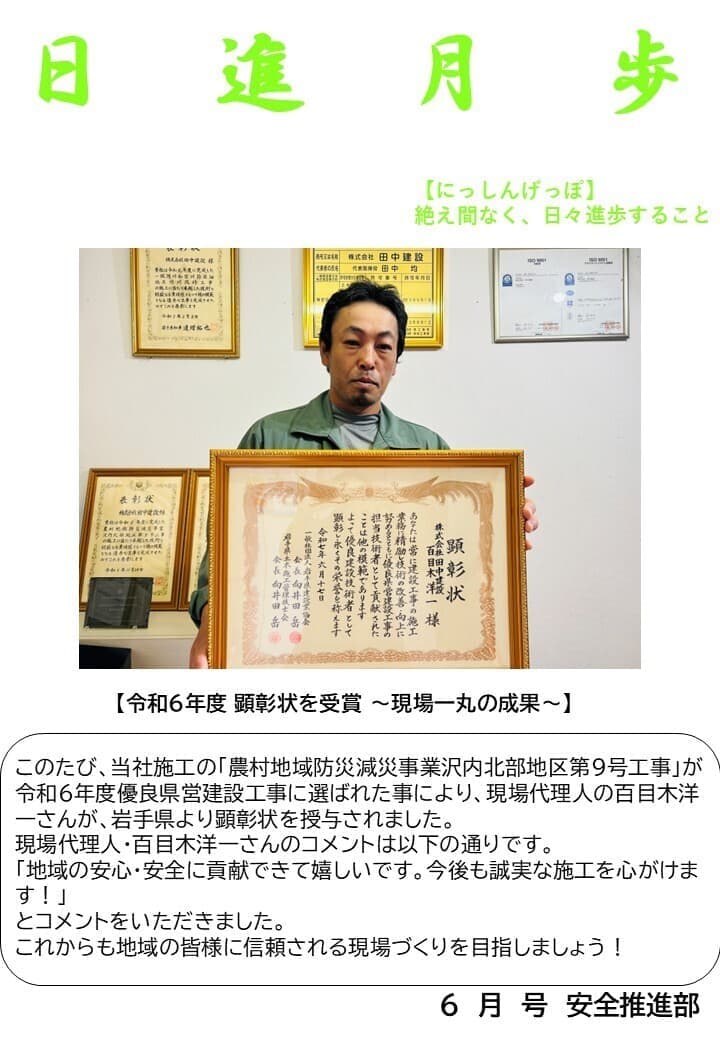 日進月歩
【にっしんげっぽ】
絶え間なく、日々進歩すること
株式会社 田中建設
代表取締役 田中 均
ISO 9001
表彰状
株式会社田中建設 様
顕彰状
株式会社田中建設
百目木洋一様
あなたは常に建設工事の施工
業務に精励し技術の改善・向上に
努めるとともに優良県営建設工事の
担当技術者として貢献された
ことは他の模範であります
よって優良建設技術者として
顕彰し永くその栄誉を称えます
令和七年六月十七日
一般社団法人岩手県建設業協会
会長 向井田岳
岩手県土木施工管理技士会
会長 向井田岳
【令和6年度 顕彰状を受賞 ～現場一丸の成果～】
このたび、当社施工の「農村地域防災減災事業沢内北部地区第9号工事」が
令和6年度優良県営建設工事に選ばれた事により、現場代理人の百目木洋
一さんが、岩手県より顕彰状を授与されました。
現場代理人・百目木洋一さんのコメントは以下の通りです。
「地域の安心・安全に貢献できて嬉しいです。今後も誠実な施工を心がけま
す！」
とコメントをいただきました。
これからも地域の皆様に信頼される現場づくりを目指しましょう！
6 月 号 安全推進部